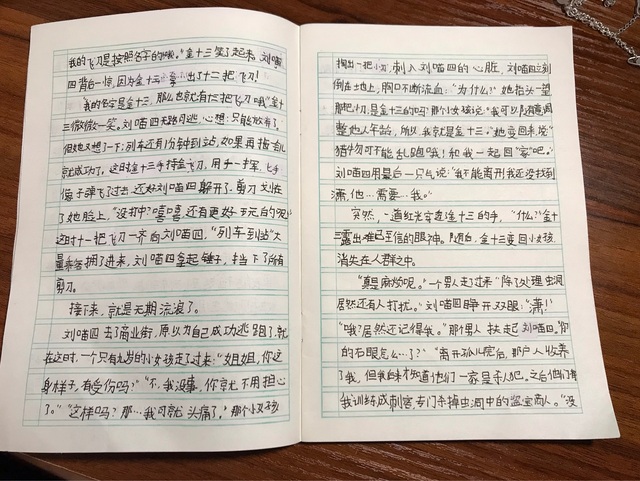 我的飞刀是按照名字的哦。”金十三笑了起来,刘喵
四背后一惊,因为金十三拿出了十二把飞刀!
“我的名字是金十三,那么也就有十三把飞刀哦”金十
三微微一笑。刘喵四无路可逃,心想:只能放弃了。
但她又想了一下:列车还有分钟到站,如果再拖会儿
就成功了。这时金十三手持金飞刀,用手一挥,七手
飞了过去,还好刘喵四躲开了,剪刀划在
了她脸上。“没打中?嘻嘻,还有更好玩的呢”
这时十一把飞刀一齐向刘喵四,“列车到站”大
量乘客拥了进来,刘喵四拿起锤子,挡下了所有
剪刀。
接下来,就是无期流浪了。
刘喵四去了商业街,原以为自己成功逃跑了,就
在这时,一个只有九岁的小女孩走了过来:“姐姐,你这
身样子,有受伤吗?”“不,我没事,你就不用担心
了。”“这样吗?那…我可就头痛了。”那个小女孩
掏出一把小刀,刺入刘喵四的心脏,刘喵四立刻
倒在地上,胸口不断流血:“为什么?”她抬头一望
那把刀,是金十三的吗?那个小女孩说:“我可以随意调
整他人年龄,所以,我就是金十三。”她变回来,说:“
猎物可不能乱跑哦!和我一起回“家”吧。”
刘喵四用最后一口气说:“我不能离开!我还没找到
潇,他…需要…我。”
突然,一道红光穿透金十三的手,“什么?”金十
三露出难已至信的眼神。随后,金十三变回小女孩
消失在人群之中。
“真是麻烦呢。”一个男人走过来“除了处理虫洞
居然还有人打扰。”刘喵四睁开双眼:“潇!”
“哦?居然还记得我。”那个男人扶起刘喵四。“你
的右眼怎么…了?”“离开孤儿院后,那户人收养
了我,但我后来才知道他们一家是杀人犯。之后他们将
我训练成刺客,专门杀掉虫洞中的鉴宝商人。”“没